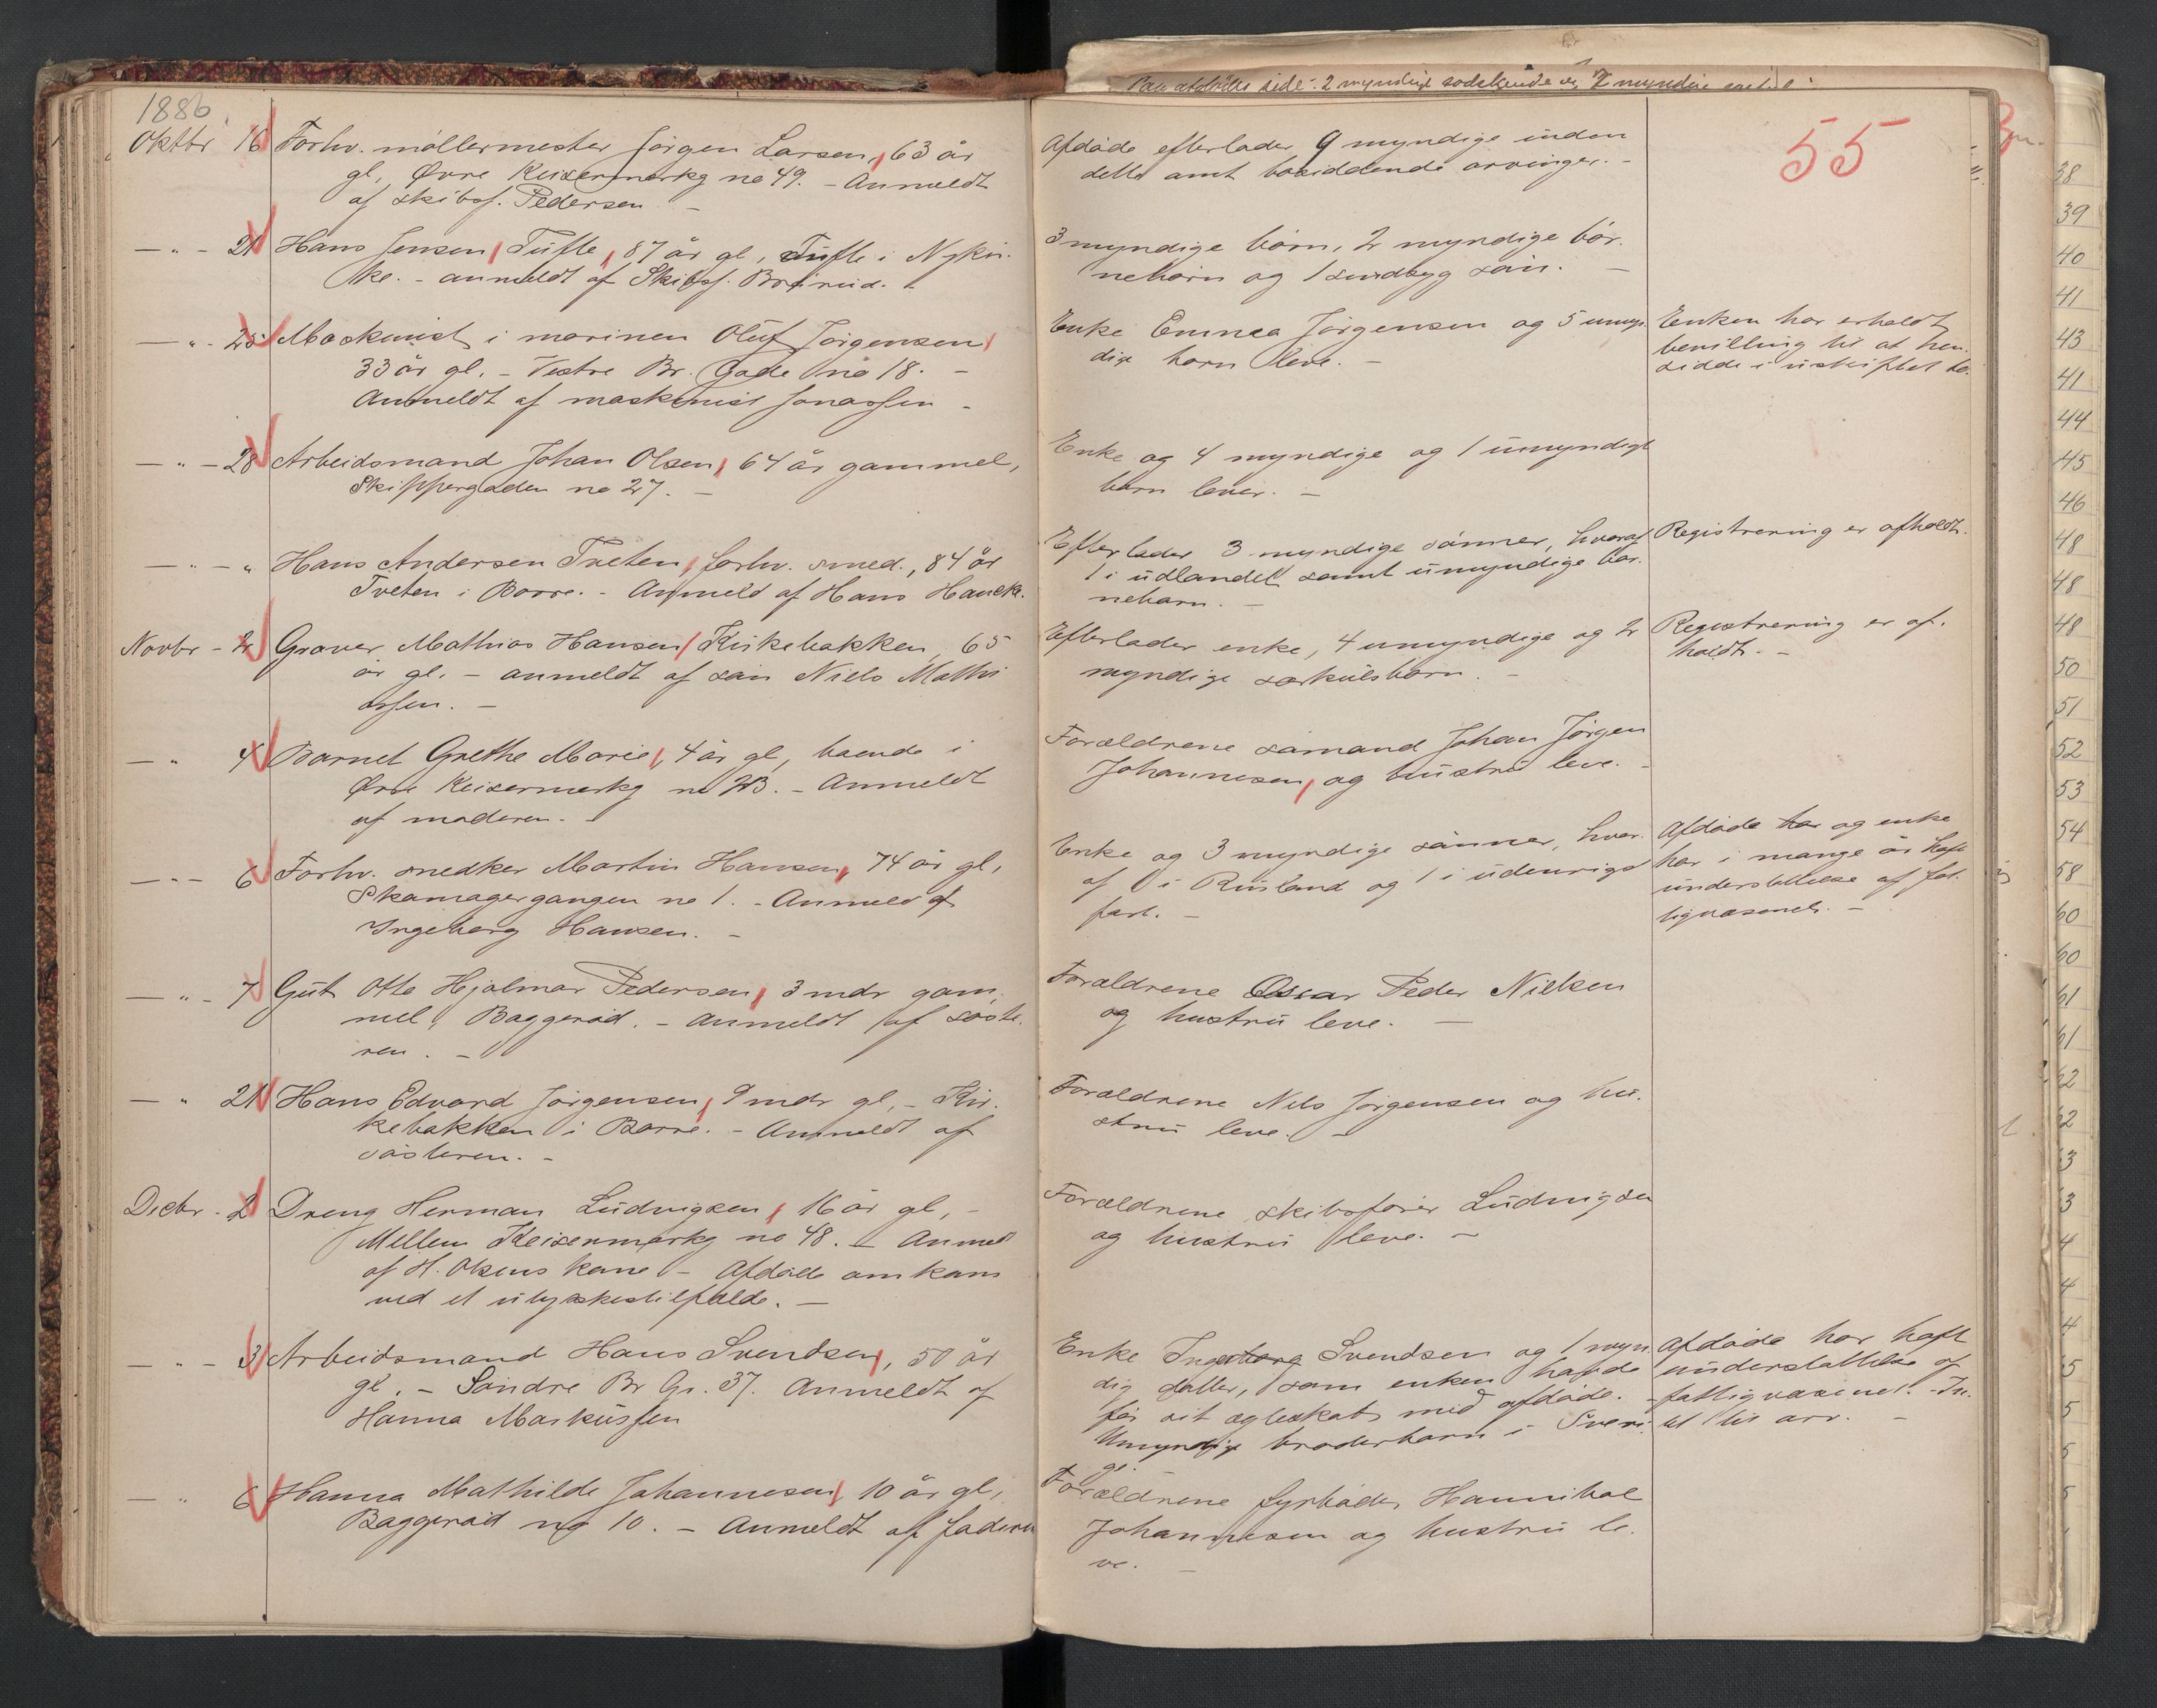 1886.
Oktbr 16 Forhv. møllermester Jørgen Larsen, 63 år
gl, Øvre Keisermarkg no 49. - Anmeldt
af skibsf. Pedersen -
- " - 21 Hans Jensen Tufte, 87 år gl, Tufte i Nykir-
ke. - anmeldt af Skibsf. -
- " - 25 Maskinist i marinen Oluf Jørgensen
33 år gl. - Vestre Br. Gade no 18. -
Anmeldt af maskinist Jonassen -
- " - 28 Arbeidsmand Johan Olsen, 64 år gammel,
Skippergaden no 27. -
- " - " Hans Andersen Tveten, forhv. smed., 84 år
Tveten i Borre. - Anmeld af Hans
Novbr - 2 Graver Mathias Hansen Kirkebakken, 65
år gl. - anmeldt af søn Niels Mathi
assen. -
- " 4 Barnet Grethe Marie, 4 år gl, boende i
Øvre Keisermarkg no 23. - Anmeldt
af moderen. -
- " - 6 Forhv. snedker Martin Hansen, 74 år gl,
Skomagergangen no 1. - Anmeld af
Ingeborg Hansen. -
- " - 7 Gut Otto Hjalmar Pedersen, 3 mdr gam-
mel, Baggerød. - Anmeldt af søste-
ren. -
- " 21 Hans Edvard Jørgensen, 9 mdr gl, - Kir-
kebakken i Borre. - Anmeldt af
søsteren. -
Decbr - 2 Dreng Herman Ludvigsen, 16 år gl, -
Mellem Keisermarkg no 48. - Anmed
af H. Olsens kone - Afdøde omkom
ved et ulykkestilfælde. -
- " - 3 Arbeidsmand Hans Svendsen, 50 år
gl. - Søndre Br Gr. 37. Anmeldt af
Hanna Markussen
- " 6 Hanna Mathilde Johannesen, 10 år gl,
Baggerød no 10. - Anmeldt af faderen
2 myndige
55
Afdøde efterlader 9 myndige inden
dette amt bosiddende arvinger. -
3 myndige børn, 2 myndige bør-
nebørn og 1 sindsyg søn. -
Enke Emnea Jørgensen og 5 umyn-
dige børn leve. -
Enken har erholdt
bevilling til at hen-
sidde i uskiftet bo.
Enke og 4 myndige og 1 umyndigt
barn lever. -
Efterlader 3 myndige sønner, hvoraf
1 i udlandet samt umyndige bør-
nebørn. -
Registrering er afholdt.
Efterlader enke, 4 umyndige og 2
myndige særkulsbørn. -
Registrering er af-
holdt. -
Forældrene sømand Johan Jørgen
Johannesen, og hustru leve. -
Enke og 3 myndige sønner, hvor-
af 1 i Rusland og 1 i udenrigs
fart. -
Afdøde har og enke
har i mange år haft
understøttelse af fat-
tigvæsenet. -
Forældrene Oscar Peder Nielsen
og hustru leve. -
Forældrene Nels Jørgensen og hu-
stru leve. -
Forældrene skibsfører Ludvigsen
og hustru leve. -
Enke Ingeborg Svendsen og 1 myn-
dig datter, som enken havde
før sit ægteskab med afdøde. -
Umyndige broderbørn i Sveri-
ge.
Afdøde har haft
understøttelse af
fattigvæsenet. - In-
tet til arv. -
Forældrene fyrbøder Hannibal
Johannesen og hustru le-
ve. -
38
39
40
41
43
41
44
45
46
48
48
48
50
51
52
53
54
58
60
60
61
61
62
62